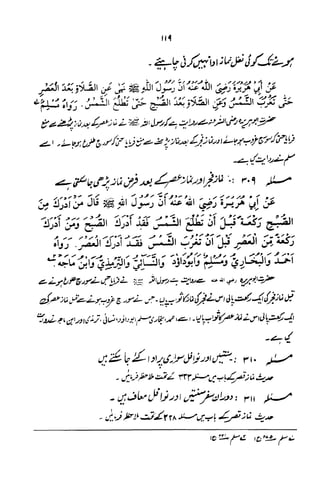 ۱۱۹
ہونے تک کوئی نفل نماز ادا نہیں کرنی چاہیئے ۔
عَنْ أَبِي هُرَيْرَةَ رَضِيَ اللهُ عَنْهُ أَنَّ رَسُولَ اللهِ ﷺ نَهَى عَنِ الصَّلَاةِ بَعْدَ الْعَصْرِ
حَتَّى تَغْرُبَ الشَّمْسُ وَعَنِ الصَّلَاةِ بَعْدَ الصُّبْحِ حَتَّى تَطْلُعَ الشَّمْسُ . رَوَاهُ مُسْلِمٌ
حضرت ابوہریرہ رضی اللہ عنہ سے روایت ہے کہ رسول اللہ ﷺ نے نماز عصر کے بعد نماز پڑھنے سے منع
فرمایا حتی کہ سورج غروب ہو جائے اور نماز فجر کے بعد نماز پڑھنے سے منع فرمایا حتی کہ سورج طلوع ہو جائے ۔ اسے
مسلم نے روایت کیا ہے۔
مسئلہ ۳۰۹ : نماز فجر اور نماز عصر کے بعد فرض نماز پڑھی جا سکتی ہے
عَنْ أَبِي هُرَيْرَةَ رَضِيَ اللهُ عَنْهُ أَنَّ رَسُولَ اللهِ ﷺ قَالَ مَنْ أَدْرَكَ مِنَ
الصُّبْحِ رَكْعَةً قَبْلَ أَنْ تَطْلُعَ الشَّمْسُ فَقَدْ أَدْرَكَ الصُّبْحَ وَمَنْ أَدْرَكَ
رَكْعَةً مِنَ الْعَصْرِ قَبْلَ أَنْ تَغْرُبَ الشَّمْسُ فَقَدْ أَدْرَكَ الْعَصْرَ . رَوَاهُ
أَحْمَدُ وَالْبُخَارِيُّ وَمُسْلِمٌ وَأَبُودَاؤُدَ وَالنَّسَائِيُّ وَالتِّرْمِذِيُّ وَابْنُ مَاجَهْ
حضرت ابوہریرہ رضی اللہ عنہ سے روایت ہے رسول اللہ ﷺ نے فرمایا جس نے سورج طلوع ہونے سے
قبل نماز فجر کی ایک رکعت پالی اس نے فجر کی نماز کا ثواب پا لیا ۔ جس نے سورج غروب ہونے سے قبل نماز عصر کی
ایک رکعت پالی اس نے نماز عصر کا ثواب پا لیا ۔ اسے احمد، بخاری، مسلم، ابو داؤد، نسائی، ترمذی اور ابن ماجہ نے روایت
کیا ہے۔
مسئلہ ۳۱۰ : سنتیں اور نوافل سواری پر ادا کئے جا سکتے ہیں
حدیث نماز قصر کے باب میں مسئلہ ۳۳۳ کے تحت ملاحظہ فرمائیں ۔
مسئلہ ۳۱۱ : دوران سفر سنتیں اور نوافل معاف ہیں ۔
حدیث نماز قصر کے باب میں مسئلہ ۳۲۸ کے تحت ملاحظہ فرمائیں ۔